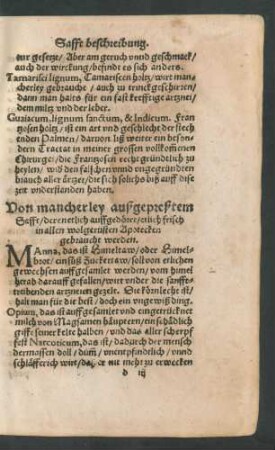 Safft beschreibung.
vor gesetzt/ Aber am geruch vnnd geschmack/
auch der wirckung/ befindt es sich anders.
Tamarisci lignum, Tamariscen holtz/ wirt man-
cherley gebraucht/ auch zu trinckgeschirren/
dann man halts für ein fast krefftige artznei/
dem miltz vnd der leber.
Guaiacum, lignum sanctum, & Indicum. Fran
zosen holtz/ ist ein art vnd geschlecht der stech
enden Palmen/ daruon liß weiter ein beson-
dern Tractat in meiner grossen vollkommenen
Chirurgei/ die Frantzosen recht gründtlich zu
heylen/ wiß den falschen vnnd vngegründten
brauch aller ärtzet/ die sich solichs biß auff dise
zeit vnderstanden haben.
Von mancherley außgepreßtem
Safft/ deren etlich auffgedörret/ etlich frisch
in allen wolgerüsten Apotecken
gebraucht werden.
MAnna, das ist Himeltaw/ oder Himel-
brot/ ein süß Zuckertaw/ soll von etlichen
gewechsen auffgesamlet werden/ vom himel
herab darauff gefallen/ wirt vnder die sanfft-
treibenden artzneien gezelt. Die körnlecht ist/
halt man für die best/ doch ein vngewiß ding.
Opium, das ist auffgesamlet vnd eingetrücknet
milch von Magsamen häuptern/ ein schädlich
gifft seiner kelte halben/ vnd das aller scherpf
fest Narcoticum, das ist/ dadurch der mensch
dermassen doll/ dumm/ vnentpfindtlich/ vnnd
schläfferich wirt/ das er nit mehr zu erwecken
d iij